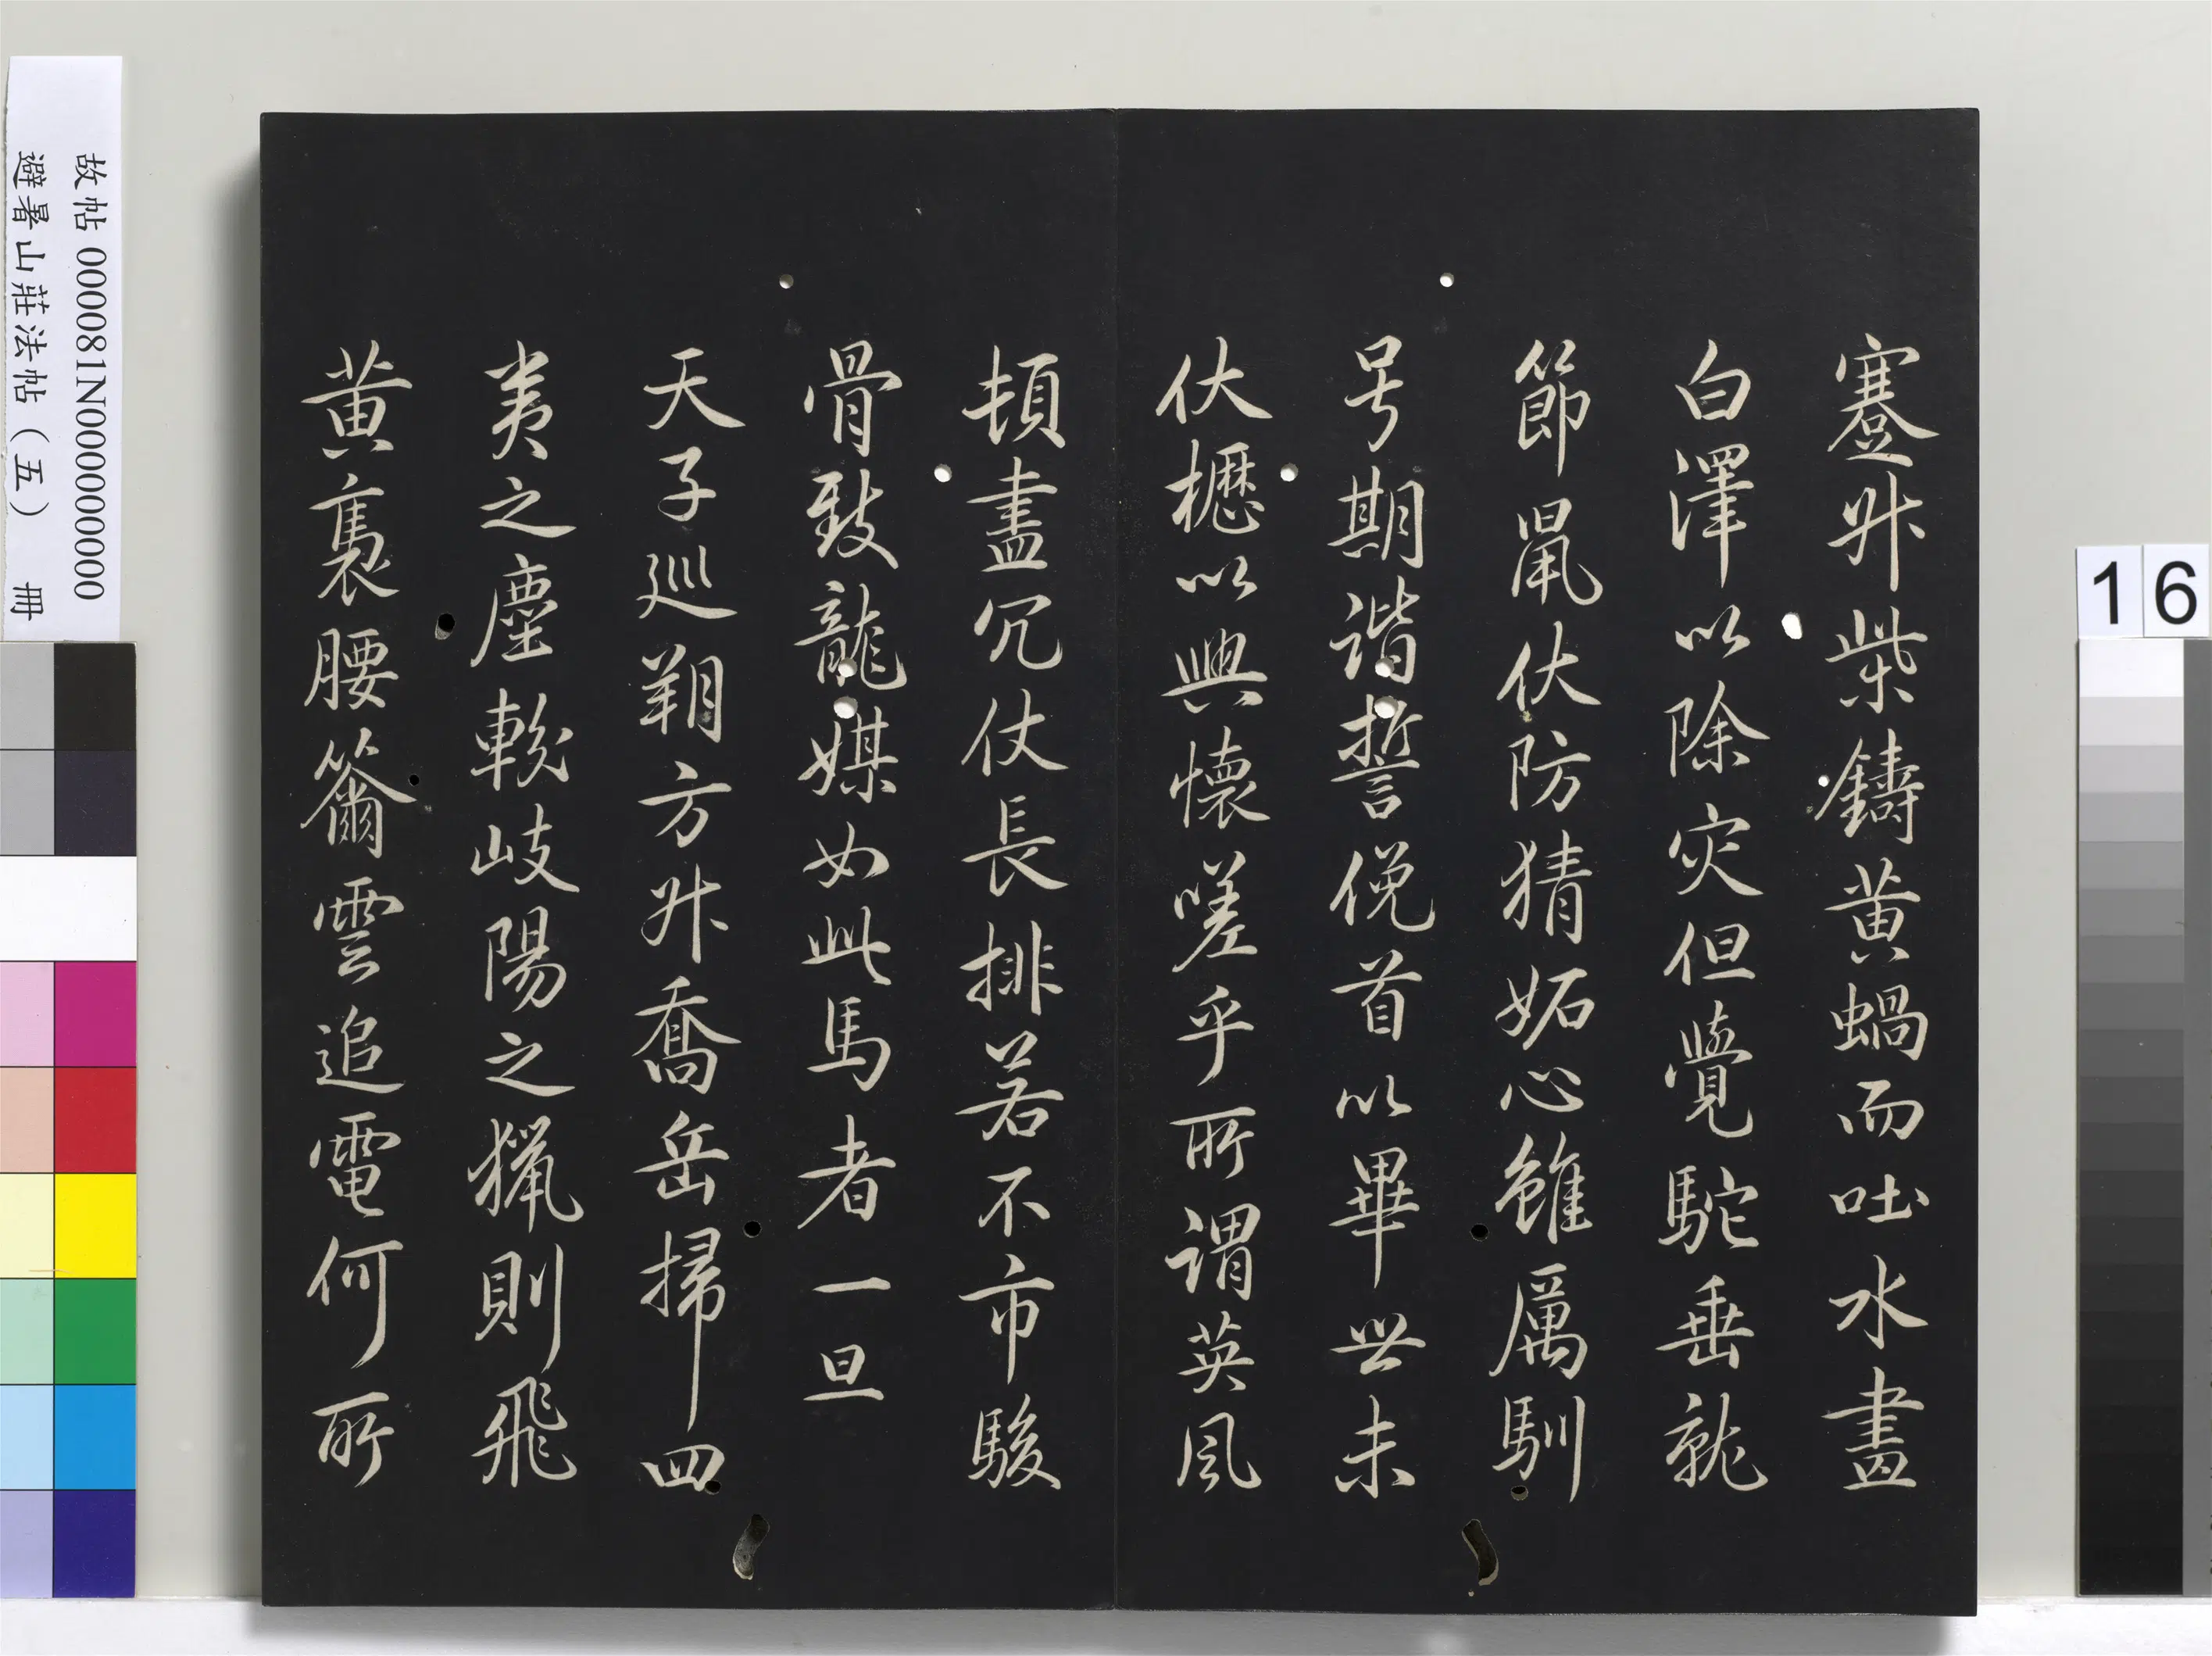 蹇升柴鑄黃蝸而吐水畫
白澤以除灾但覺駝垂就
節鼠伏防猜妬心雖厲馴
号期諧誓俛首以畢世未
伏櫪以興懷嗟乎所謂英風
頓盡冗仗長排若不市駿
骨致龍媒如此馬者一旦
天子巡朔方升喬岳掃四
夷之塵較岐陽之獵則飛
黃褭腰籋雲追電何所
故帖 000081N000000000
避暑山莊法帖（五） 冊
16